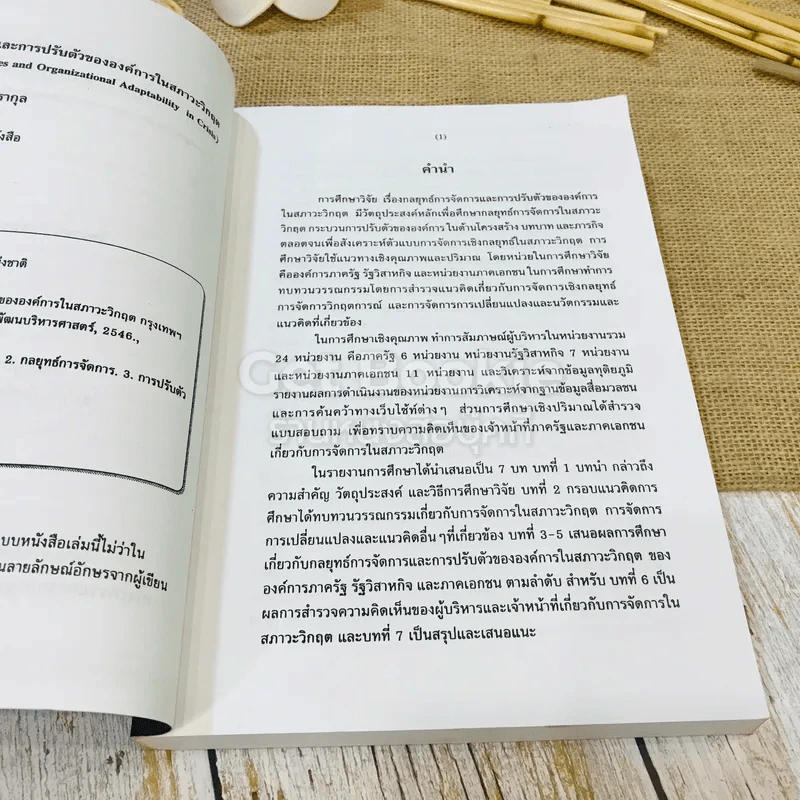 และการปรับตัวขององค์การในสภาวะวิกฤต
es and Organizational Adaptability in Crisis)
รากุล
งสือ
งชาติ
ขององค์การในสภาวะวิกฤต กรุงเทพฯ
พัฒนบริหารศาสตร์, 2546.,
2. กลยุทธ์การจัดการ. 3. การปรับตัว
แบบหนังสือเล่มนี้ไม่ว่าใน
นลายลักษณ์อักษรจากผู้เขียน
(1)
คำนำ
การศึกษาวิจัย เรื่องกลยุทธ์การจัดการและการปรับตัวขององค์การ
ในสภาวะวิกฤต มีวัตถุประสงค์หลักเพื่อศึกษากลยุทธ์การจัดการในสภาวะ
วิกฤต กระบวนการปรับตัวขององค์การในด้านโครงสร้าง บทบาท และภารกิจ
ตลอดจนเพื่อสังเคราะห์ตัวแบบการจัดการเชิงกลยุทธ์ในสภาวะวิกฤต การ
ศึกษาวิจัยใช้แนวทางเชิงคุณภาพและปริมาณ โดยหน่วยในการศึกษาวิจัย
คือองค์การภาครัฐ รัฐวิสาหกิจ และหน่วยงานภาคเอกชน ในการศึกษาทำการ
ทบทวนวรรณกรรมโดยการสำรวจแนวคิดเกี่ยวกับการจัดการเชิงกลยุทธ์
การจัดการวิกฤตการณ์ และการจัดการการเปลี่ยนแปลงและนวัตกรรมและ
แนวคิดที่เกี่ยวข้อง
ในการศึกษาเชิงคุณภาพ ทำการสัมภาษณ์ผู้บริหารในหน่วยงานรวม
24 หน่วยงาน คือภาครัฐ 6 หน่วยงาน หน่วยงานรัฐวิสาหกิจ 7 หน่วยงาน
และหน่วยงานภาคเอกชน 11 หน่วยงาน และวิเคราะห์จากข้อมูลทุติยภูมิ
รายงานผลการดำเนินงานของหน่วยงานการวิเคราะห์จากฐานข้อมูลสื่อมวลชน
และการค้นคว้าทางเว็บไซ้ท์ต่างๆ ส่วนการศึกษาเชิงปริมาณได้สำรวจ
แบบสอบถาม เพื่อทราบความคิดเห็นของเจ้าหน้าที่ภาครัฐและภาคเอกชน
เกี่ยวกับการจัดการในสภาวะวิกฤต
ในรายงานการศึกษาได้นำเสนอเป็น 7 บท บทที่ 1 บทนำ กล่าวถึง
ความสำคัญ วัตถุประสงค์ และวิธีการศึกษาวิจัย บทที่ 2 กรอบแนวคิดการ
ศึกษาได้ทบทวนวรรณกรรมเกี่ยวกับการจัดการในสภาวะวิกฤต การจัดการ
การเปลี่ยนแปลงและแนวคิดอื่นๆที่เกี่ยวข้อง บทที่ 3-5 เสนอผลการศึกษา
เกี่ยวกับกลยุทธ์การจัดการและการปรับตัวขององค์การในสภาวะวิกฤต ของ
องค์การภาครัฐ รัฐวิสาหกิจ และภาคเอกชน ตามลำดับ สำหรับ บทที่ 6 เป็น
ผลการสำรวจความคิดเห็นของผู้บริหารและเจ้าหน้าที่เกี่ยวกับการจัดการใน
สภาวะวิกฤต และบทที่ 7 เป็นสรุปและเสนอแนะ